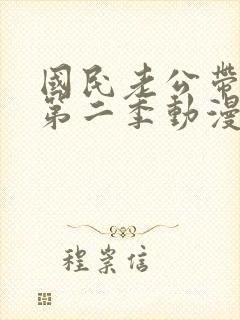 國民老公帶
第二季動漫
程崇信